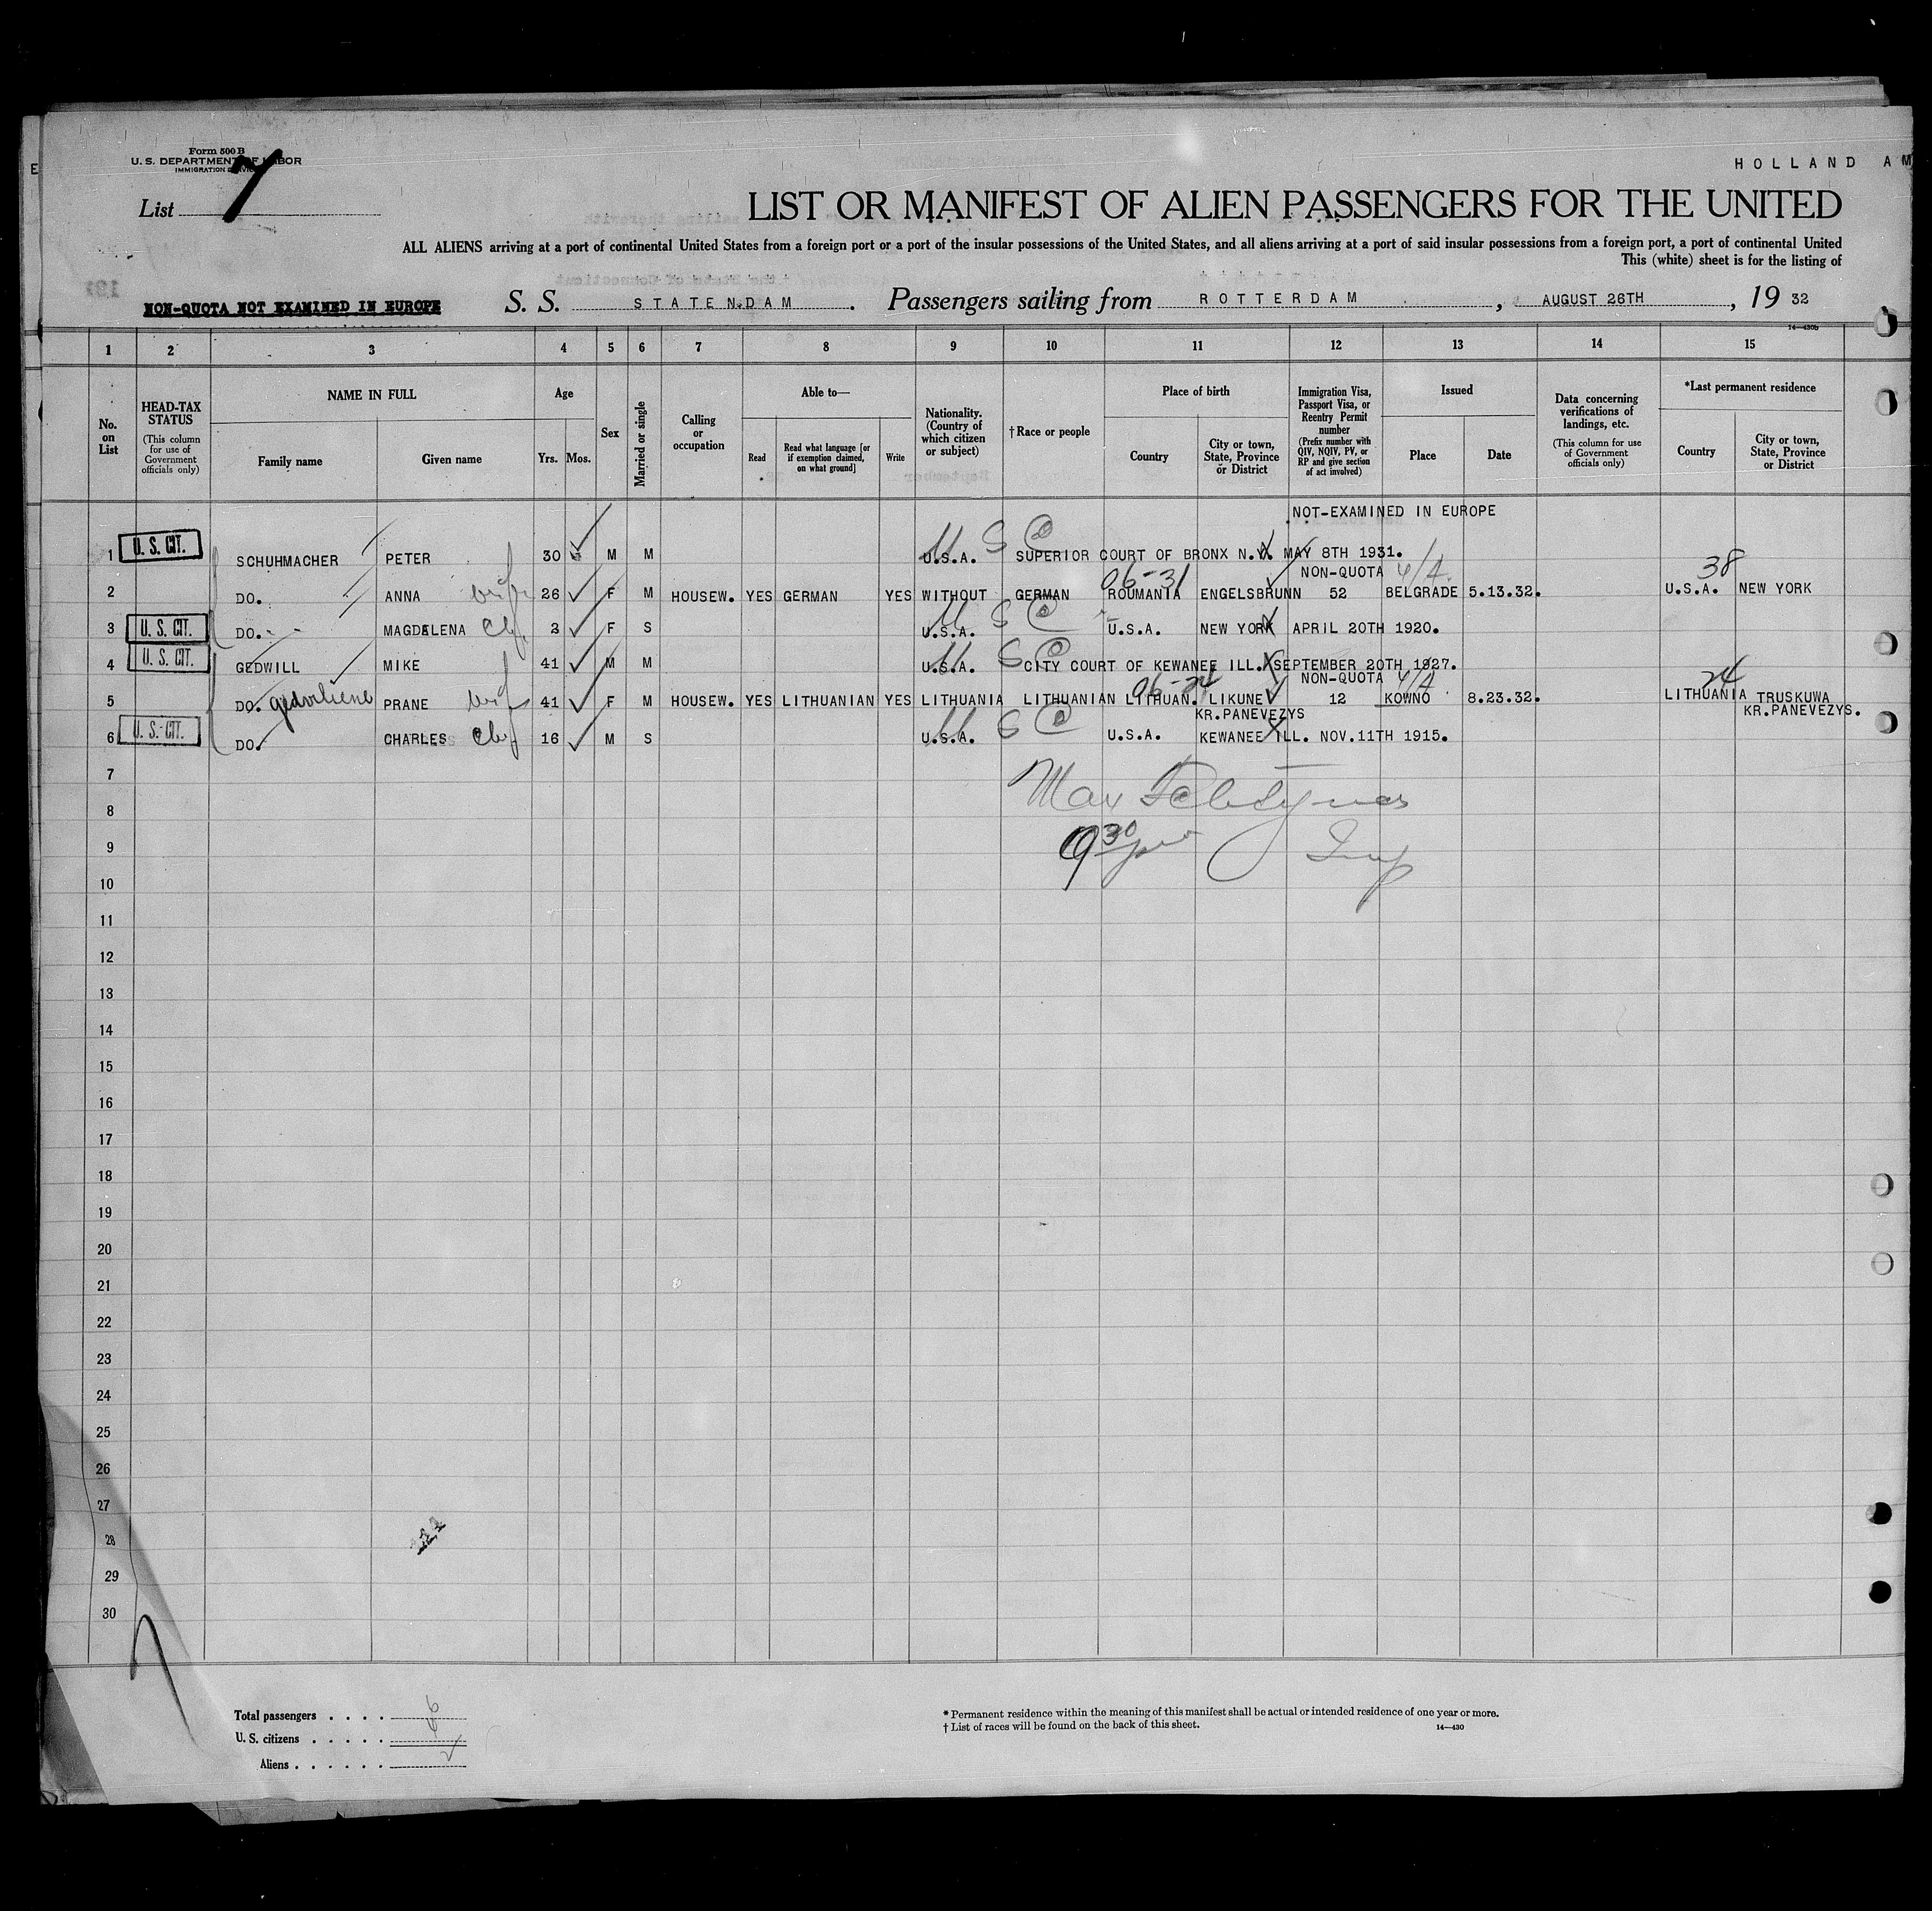 Form 500 B
U. S. DEPARTMENT OF LABOR
IMMIGRATION SERVICE
HOLLAND AM
List 7
LIST OR MANIFEST OF ALIEN PASSENGERS FOR THE UNITED
ALL ALIENS arriving at a port of continental United States from a foreign port or a port of the insular possessions of the United States, and all aliens arriving at a port of said insular possessions from a foreign port, a port of continental United
This (white) sheet is for the listing of
NON-QUOTA NOT EXAMINED IN EUROPE
S. S. STATENDAM. Passengers sailing from ROTTERDAM, AUGUST 26TH, 19 32
14—430b
1 2 3 4 5 6 7 8 9 10 11 12 13 14 15
No. on List
HEAD-TAX STATUS
(This column for use of Government officials only)
NAME IN FULL
Family name
Given name
Age
Yrs. Mos.
Sex
Married or single
Calling or occupation
Able to—
Read
Read what language [or if exemption claimed, on what ground]
Write
Nationality. (Country of which citizen or subject)
†Race or people
Place of birth
Country
City or town, State, Province or District
Immigration Visa, Passport Visa, or Reentry Permit number
(Prefix number with QIV, NQIV, PV, or RP and give section of act involved)
Issued
Place
Date
Data concerning verifications of landings, etc.
(This column for use of Government officials only)
*Last permanent residence
Country
City or town, State, Province or District
NOT-EXAMINED IN EUROPE
1 U. S. CIT. SCHUHMACHER PETER 30 M M U.S.A. U S C SUPERIOR COURT OF BRONX N.Y. MAY 8TH 1931.
NON-QUOTA 4/A. 06-31 38
2 DO. ANNA wif 26 F M HOUSEW. YES GERMAN YES WITHOUT GERMAN ROUMANIA ENGELSBRUNN 52 BELGRADE 5.13.32. U.S.A. NEW YORK
3 U. S. CIT. DO. MAGDELENA Chf 2 F S U.S.A. U S C U.S.A. NEW YORK APRIL 20TH 1920.
4 U. S. CIT. GEDWILL MIKE 41 M M U.S.A. U S C CITY COURT OF KEWANEE ILL. SEPTEMBER 20TH 1927.
NON-QUOTA 4/A 06-24 24
5 DO. PRANE wif 41 F M HOUSEW. YES LITHUANIAN YES LITHUANIA LITHUANIAN LITHUAN. LIKUNE 12 KOWNO 8.23.32. LITHUANIA TRUSKUWA
KR.PANEVEZYS KR.PANEVEZYS.
6 U. S. CIT. DO. CHARLES Chf 16 M S U.S.A. U S C U.S.A. KEWANEE ILL. NOV.11TH 1915.
7
Max
8
9 9 30 pm Insp
10
11
12
13
14
15
16
17
18
19
20
21
22
23
24
25
26
27
28
29
30
Total passengers . . . . 6
U. S. citizens . . . . .
Aliens . . . . . .
* Permanent residence within the meaning of this manifest shall be actual or intended residence of one year or more.
† List of races will be found on the back of this sheet.
14—430